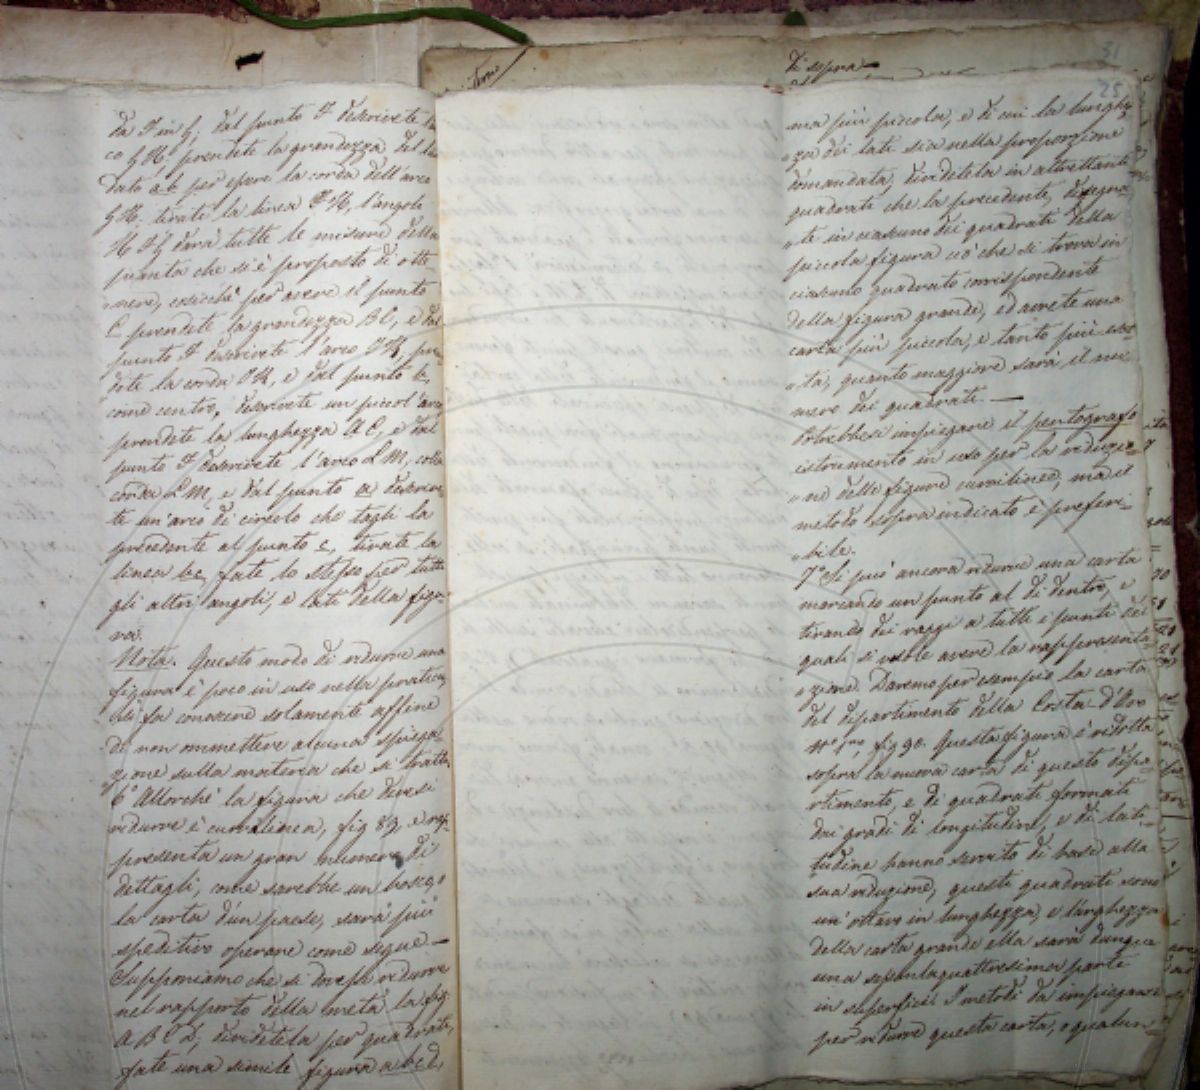 di sopra
31
25
da F in G; dal punto F descrivete l'ar-
co GH. prendete la grandezza del
dato ab per essere la corda dell'arco
GH. tirate la linea FH, l'angolo
HFG darà tutte le misure della
pianta che si è proposto di otte-
nere, cosicché per avere il punto
C prendete la grandezza BC, e dal
punto F descrivete l'arco IK, pren-
dete la corda IK, e dal punto b,
come centro, descrivete un piccol'arco
prendete la lunghezza AC, e dal
punto F descrivete l'arco LM, colla
corda LM, e dal punto a descrive-
te un'arco di circolo che tagli la
precedente al punto c, tirate la
linea bc, fate lo stesso per tutti
gli altri angoli, e lati della figu-
ra.
Nota. Questo modo di ridurre una
figura è poco in uso nella pratica,
si fa conoscere solamente affine
di non ommettere alcuna spiega-
zione sulla materia che si tratta.
6° Allorché la figura che devesi
ridurre è curvalinea, fig 89 e rap-
presenta un gran numero di
dettagli, come sarebbe un bosco,
la carta d'un paese, sarà più
speditivo operare come segue.—
Supponiamo che si dovesse ridurre
nel rapporto della metà la fig.
ABCD, dividetela per quadrati,
fate una simile figura abcd,
ma più piccola, e di cui la lunghe-
zza dei lati sia nella proporzione
domandata, dividetela in altrettanti
quadrati che la precedente, disegna-
te in ciascuno dei quadrati della
piccola figura ciò che si trova in
ciascuno quadrato corrispondente
della figura grande, ed avrete una
carta più piccola, e tanto più esat-
ta, quanto maggiore sarà il nu-
mero dei quadrati.—
Potrebbesi impiegare il pentografo
istrumento in uso per la riduzio-
ne delle figure curvilinee, ma il
metodo sopra indicato è preferi-
bile.
7° Si può ancora ridurre una carta
marcando un punto al di dentro, e
tirando dei raggi a tutti i punti dei
quali si vuole avere la rappresenta-
zione. Daremo per esempio la carta
del dipartimento della Costa d'Oro
fig 90. Questa figura è ridotta
sopra la nuova carta di questo dipa-
rtimento, e di quadrati formati
dai gradi di longitudine, e di lati-
tudine hanno servito di base alla
sua riduzione, questi quadrati sono
un'ottavo in lunghezza, e larghezza
della carta grande ella sarà dunque
una sessantaquattresima parte
in superficie. I metodi da impiegarsi
per ridurre questa carta, o qualun-